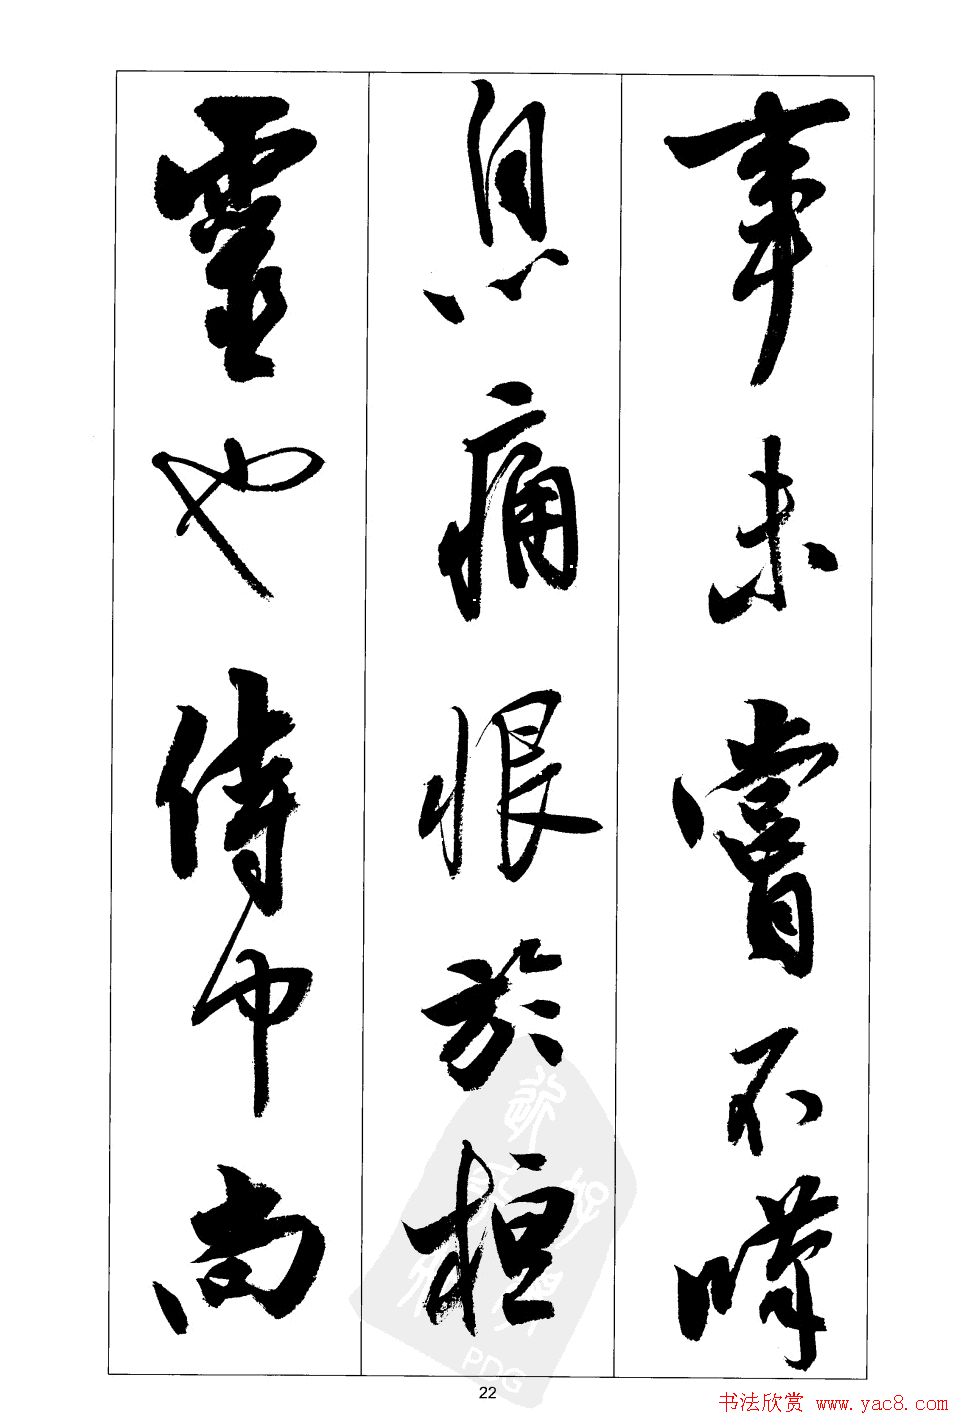 事未嘗不嘆
息痛恨於桓
靈也侍中尚
22
书法欣赏 www.yac8.com
PDG